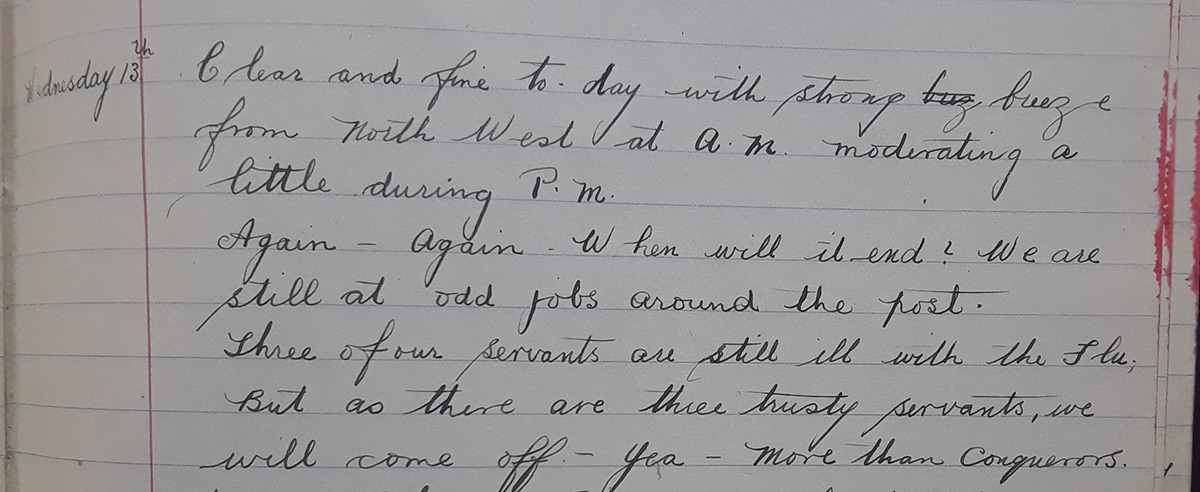 Wednesday 13th Clear and fine to-day with strong brez breeze
from North West at A.M. moderating a
little during P.M.
Again - Again - When will it end? We are
still at odd jobs around the post.
Three of our servants are still ill with the Flu;
But as there are three trusty servants, we
will come off - Yea - More than Conquerors.